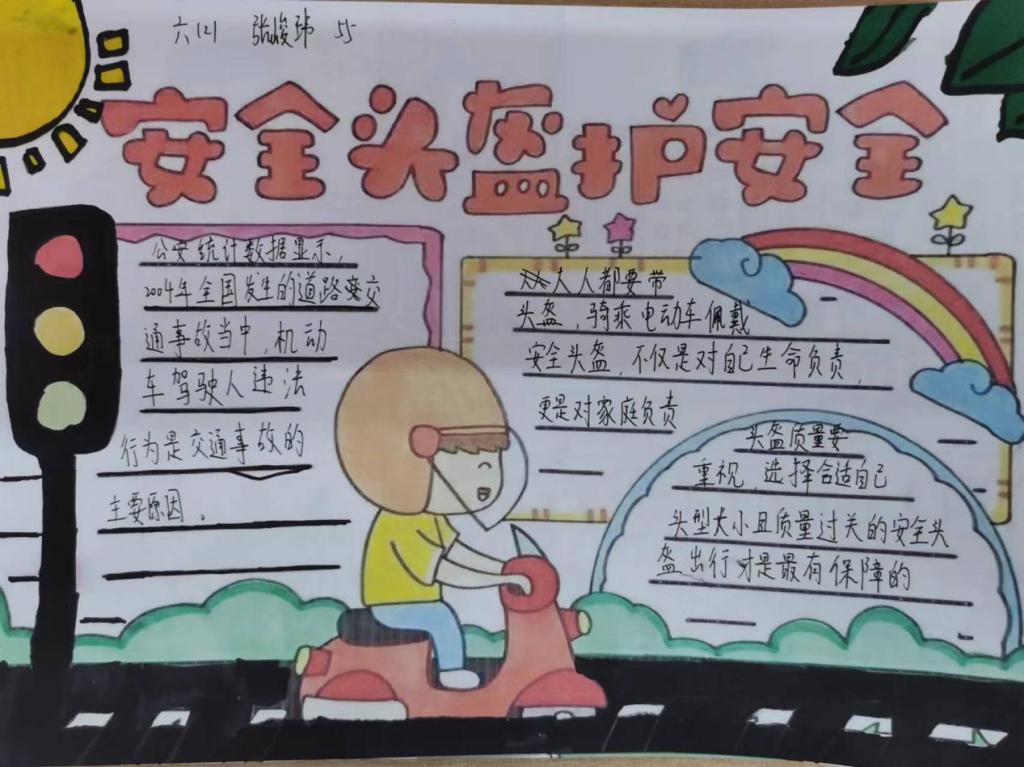 六(2) 张峻玮 55
安全头盔护安全
公安统计数据显示,
2004年全国发生的道路交
通事故当中,机动
车驾驶人违法
行为是交通事故的
主要原因。
人人都要带
头盔,骑乘电动车佩戴
安全头盔,不仅是对自己生命负责,
更是对家庭负责
头盔质量要
重视,选择合适自己
头型大小且质量过关的安全头
盔出行才是最有保障的